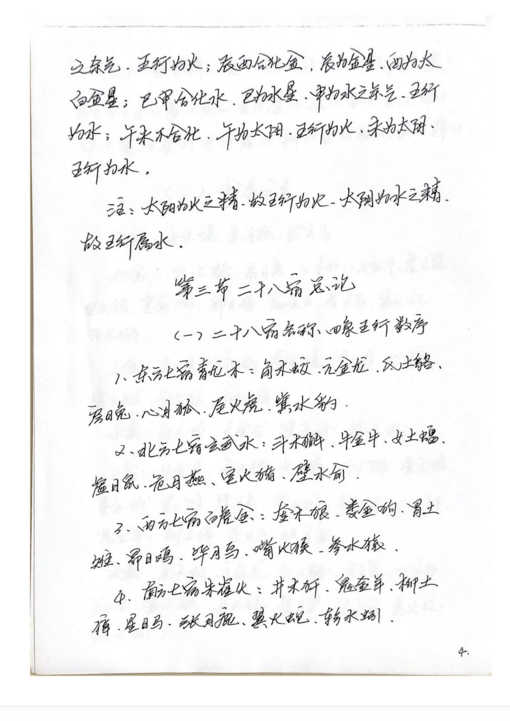 之余气、五行为火；辰酉合化金，辰为金星，酉为太
白金星；巳申合化水，巳为水星、申为水之余气、五行
为水；午未不合化、午为太阳、五行为火、未为太阴、
五行为水。
注：太阳为火之精、故五行为火、太阴为水之精、
故五行属水。
第三节 二十八宿总论
（一）二十八宿名称、四象五行数序
1、东方七宿青龙木：角木蛟、亢金龙、氐土貉、
房日兔、心月狐、尾火虎、箕水豹.
2、北方七宿玄武水：斗木獬、牛金牛、女土蝠、
虚日鼠、危月燕、室火猪、壁水俞.
3、西方七宿白虎金：奎木狼、娄金狗、胃土
雉、昴日鸡、毕月乌、嘴火猴、参水猿、
4、南方七宿朱雀火：井木犴、鬼金羊、柳土
獐、星日马、张月鹿、翼火蛇、轸水蚓.
4.